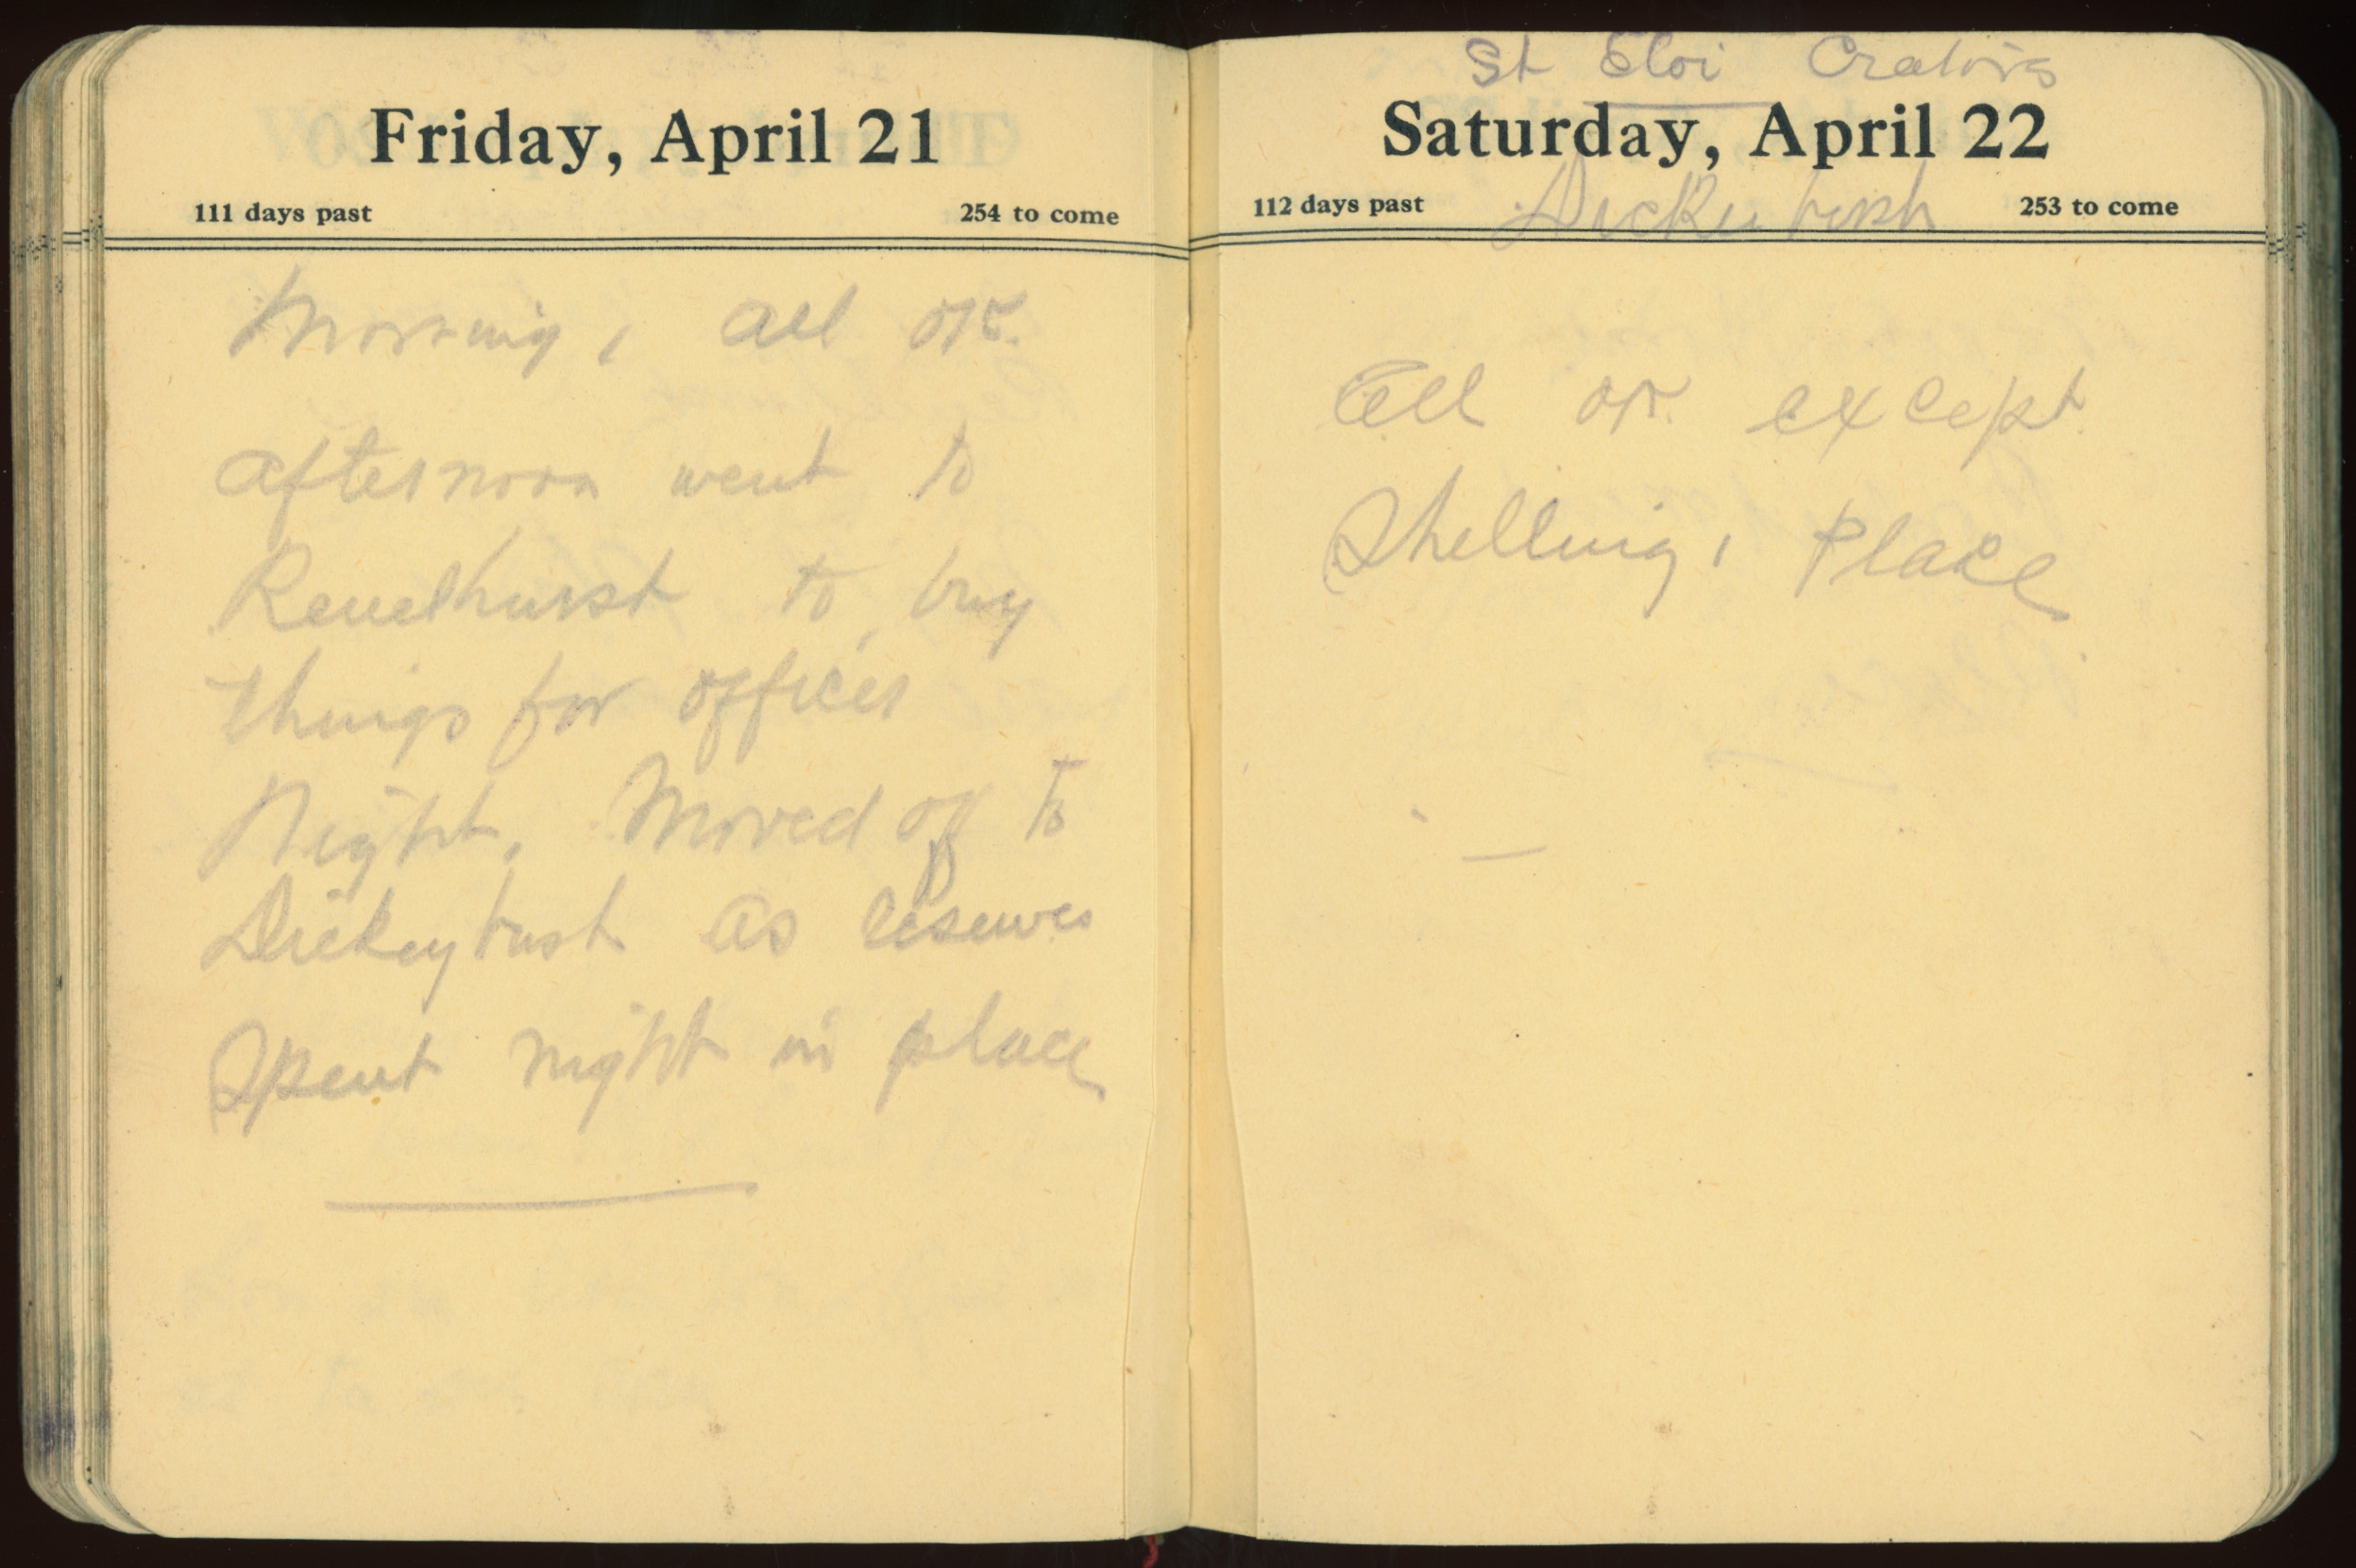 Friday, April 21
111 days past 254 to come
Morning, all OK.
afternoon went to
Renelhurst to buy
things for officer
Night, Moved off to
Dickeybush as reserves
Spent night in place
St Eloi Crators
Saturday, April 22
112 days past 253 to come
Dickubush
All OK. except
Shelling, Place